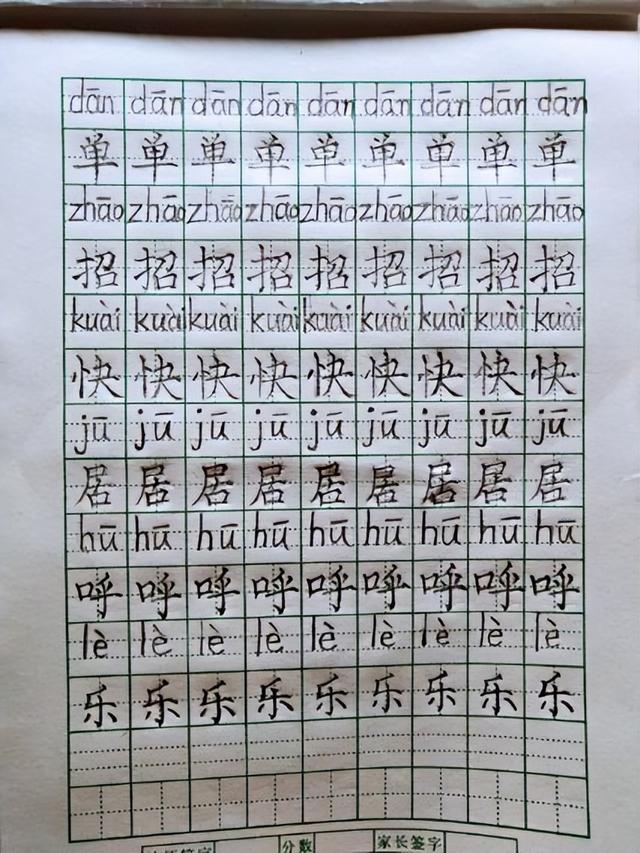 dān dān dān dān dān dān dān dān dān
单 单 单 单 单 单 单 单 单
zhāo zhāo zhāo zhāo zhāo zhāo zhāo zhāo zhāo
招 招 招 招 招 招 招 招 招
kuài kuài kuài kuài kuài kuài kuài kuài kuài
快 快 快 快 快 快 快 快 快
jū jū jū jū jū jū jū jū jū
居 居 居 居 居 居 居 居 居
hū hū hū hū hū hū hū hū hū
呼 呼 呼 呼 呼 呼 呼 呼 呼
lè lè lè lè lè lè lè lè lè
乐 乐 乐 乐 乐 乐 乐 乐 乐
分数 家长签字